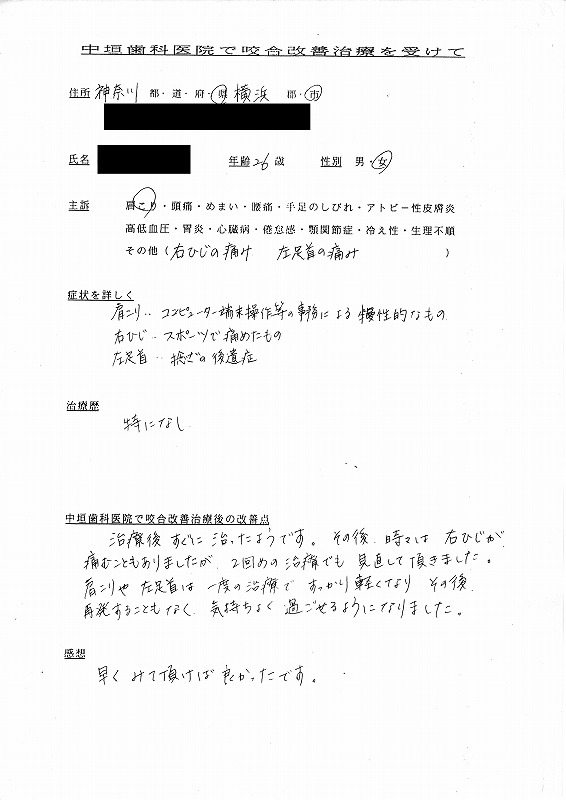 中垣歯科医院で咬合改善治療を受けて
住所 神奈川 都・道・府・県 横浜 郡・市
氏名 年齢 26 歳 性別 男・女
主訴 肩こり・頭痛・めまい・腰痛・手足のしびれ・アトピー性皮膚炎
高低血圧・胃炎・心臓病・倦怠感・顎関節症・冷え性・生理不順
その他（右ひじの痛み 左足首の痛み ）
症状を詳しく
肩こり‥コンピューター端末操作等の事務による慢性的なもの
右ひじ‥スポーツで痛めたもの
左足首‥捻ざの後遺症
治療歴
特になし
中垣歯科医院で咬合改善治療後の改善点
治療後すぐに治ったようです。その後、時々は右ひじが
痛むこともありましたが、2回めの治療でも見直して頂きました。
肩こりや左足首は一度の治療ですっかり軽くなりその後
再発することもなく、気持ちよく過ごせるようになりました。
感想
早くみて頂けば良かったです。